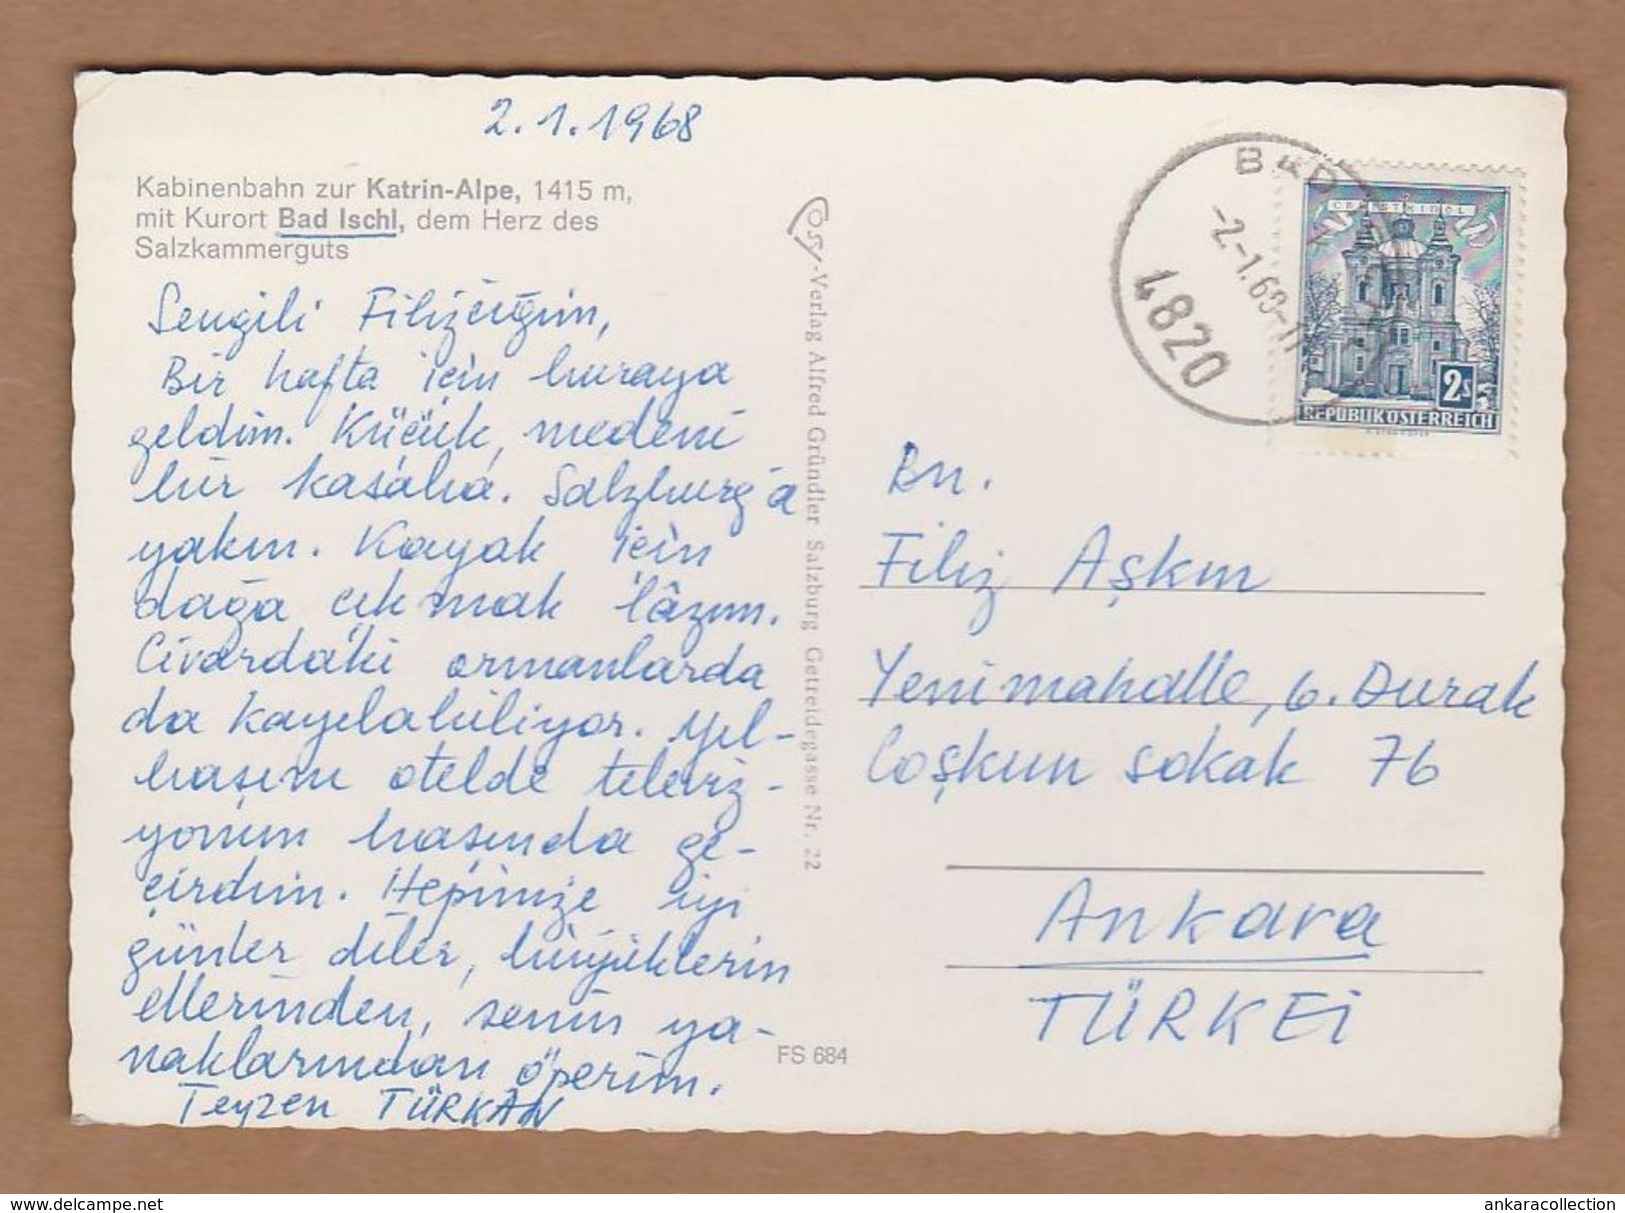 2.1.1968
Kabinenbahn zur Katrin-Alpe, 1415 m,
mit Kurort Bad Ischl, dem Herz des
Salzkammerguts
Sevgili Filizciğim,
Bir hafta için buraya
geldim. Küçük, medenî
bir kasaba. Salzburg'a
yakın. Kayak için
dağa çıkmak lâzım.
Civardaki ormanlarda
da kayılabiliyor. Yıl-
başını otelde televiz-
yonun başında ge-
çirdim. Hepinize iyi
günler diler, büyüklerin
ellerinden, senin ya-
naklarından öperim.
Teyzen TÜRKÂN
Cosy-Verlag Alfred Gründler Salzburg Getreidegasse Nr. 22
FS 684
BAD
-2-1.68-11
4820
CHRISTKINDL
2s
REPUBLIK ÖSTERREICH
Bn.
Filiz Aşkın
Yenimahalle, 6. Durak
Coşkun sokak 76
Ankara
TÜRKEi
www.delcampe.net
ankaracollection